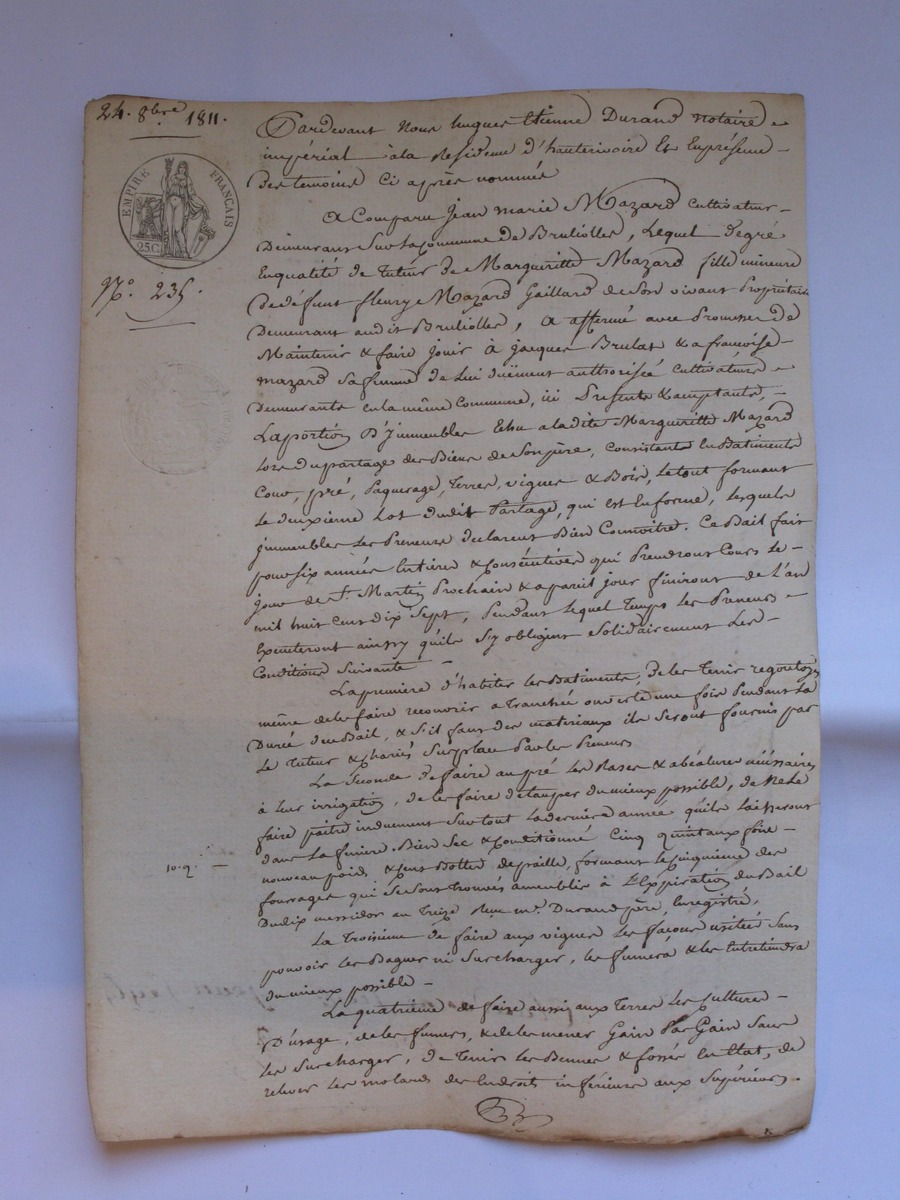 24. 8bre 1811.
EMPIRE FRANÇAIS
25 C
N.o 235.
Pardevant Nous hugues Etienne Durand notaire
impérial à la Residence d'hauterivoire Et En présence
Des temoins Ci après nommés
A Comparu Jean marie Mazard Cultivateur
Demeurant Sur la Commune de Bruliolles, Lequel De gré
En qualité de tuteur de Margueritte Mazard fille mineure
De défunt fleury Mazard Gaillard de Son vivant Propriétaire
Demeurant audit Brulliolles, A affermé avec Promesse De
Maintenir & faire Jouir à Jacques Brulat & a françoise
mazard Sa femme De lui düement authorisée Cultivateurs
Demeurants en la même Commune, ici Présents & acceptants,
La portion D'Immeubles Echu a ladite Margueritte Mazard
Lors du partage des Biens de Son père, Consistants En Batiments
Cour, pré, Paquerage, Terres, vignes & Bois, Le tout formant
Le deuxième Lot dudit Partage, qui est En forme, lesquels
immeubles Les Preneurs declarent Bien Connoitre. Ce Bail fait
pour Six années Entières & Consécutives qui Prendront Cours Le
Jour de St. Martin Prochain & a pareil jour finiront de L'an
mil huit Cent Dix Sept, Pendant Lequel Temps Les Preneurs
Executeront ainsy qu'ils S'y obligent Solidairement Les
Conditions Suivantes
La première d'habiter Les Batiments, de les Tenir regoutoyés
même de les faire recouvrir a Tranchée ouverte une fois Pendant La
Durée du Bail, & S'il faut Des materiaux ils Seront fournis par
Le Tuteur & Chariés Sur place Par les Preneurs
La Seconde De faire au pré Les Rases & abéalures nécessaires
à Leur irrigation, de les faire détauper du mieux possible, de Ne Le
faire paitre induement Sur tout La dernière année qu'ils Laisseront
dans La feniere Bien Sec & Conditionné Cinq quintaux foin
nouveau poid, & Cent Bottes de paille, formant Le Cinquième des
fourages qui Se Sont Trouvés ameublis à L'Expiration du Bail
Du dix messidor an Treize Reçu me. Durand père, Enregistré,
La Troisième de faire aux vignes Les façons usitées Sans
pouvoir Les Baguer ni Surcharger, les fumera & les Entretiendra
du mieux possible
La quatrième de faire aussi aux Terres Les Cultures
D'usage, de les fumer, & de les mener Gain Par Gain Sans
Les Surcharger, de Tenir Les Bennes & fossés En Etat, de
relever Les molards des Endroits inférieurs aux Supérieurs.